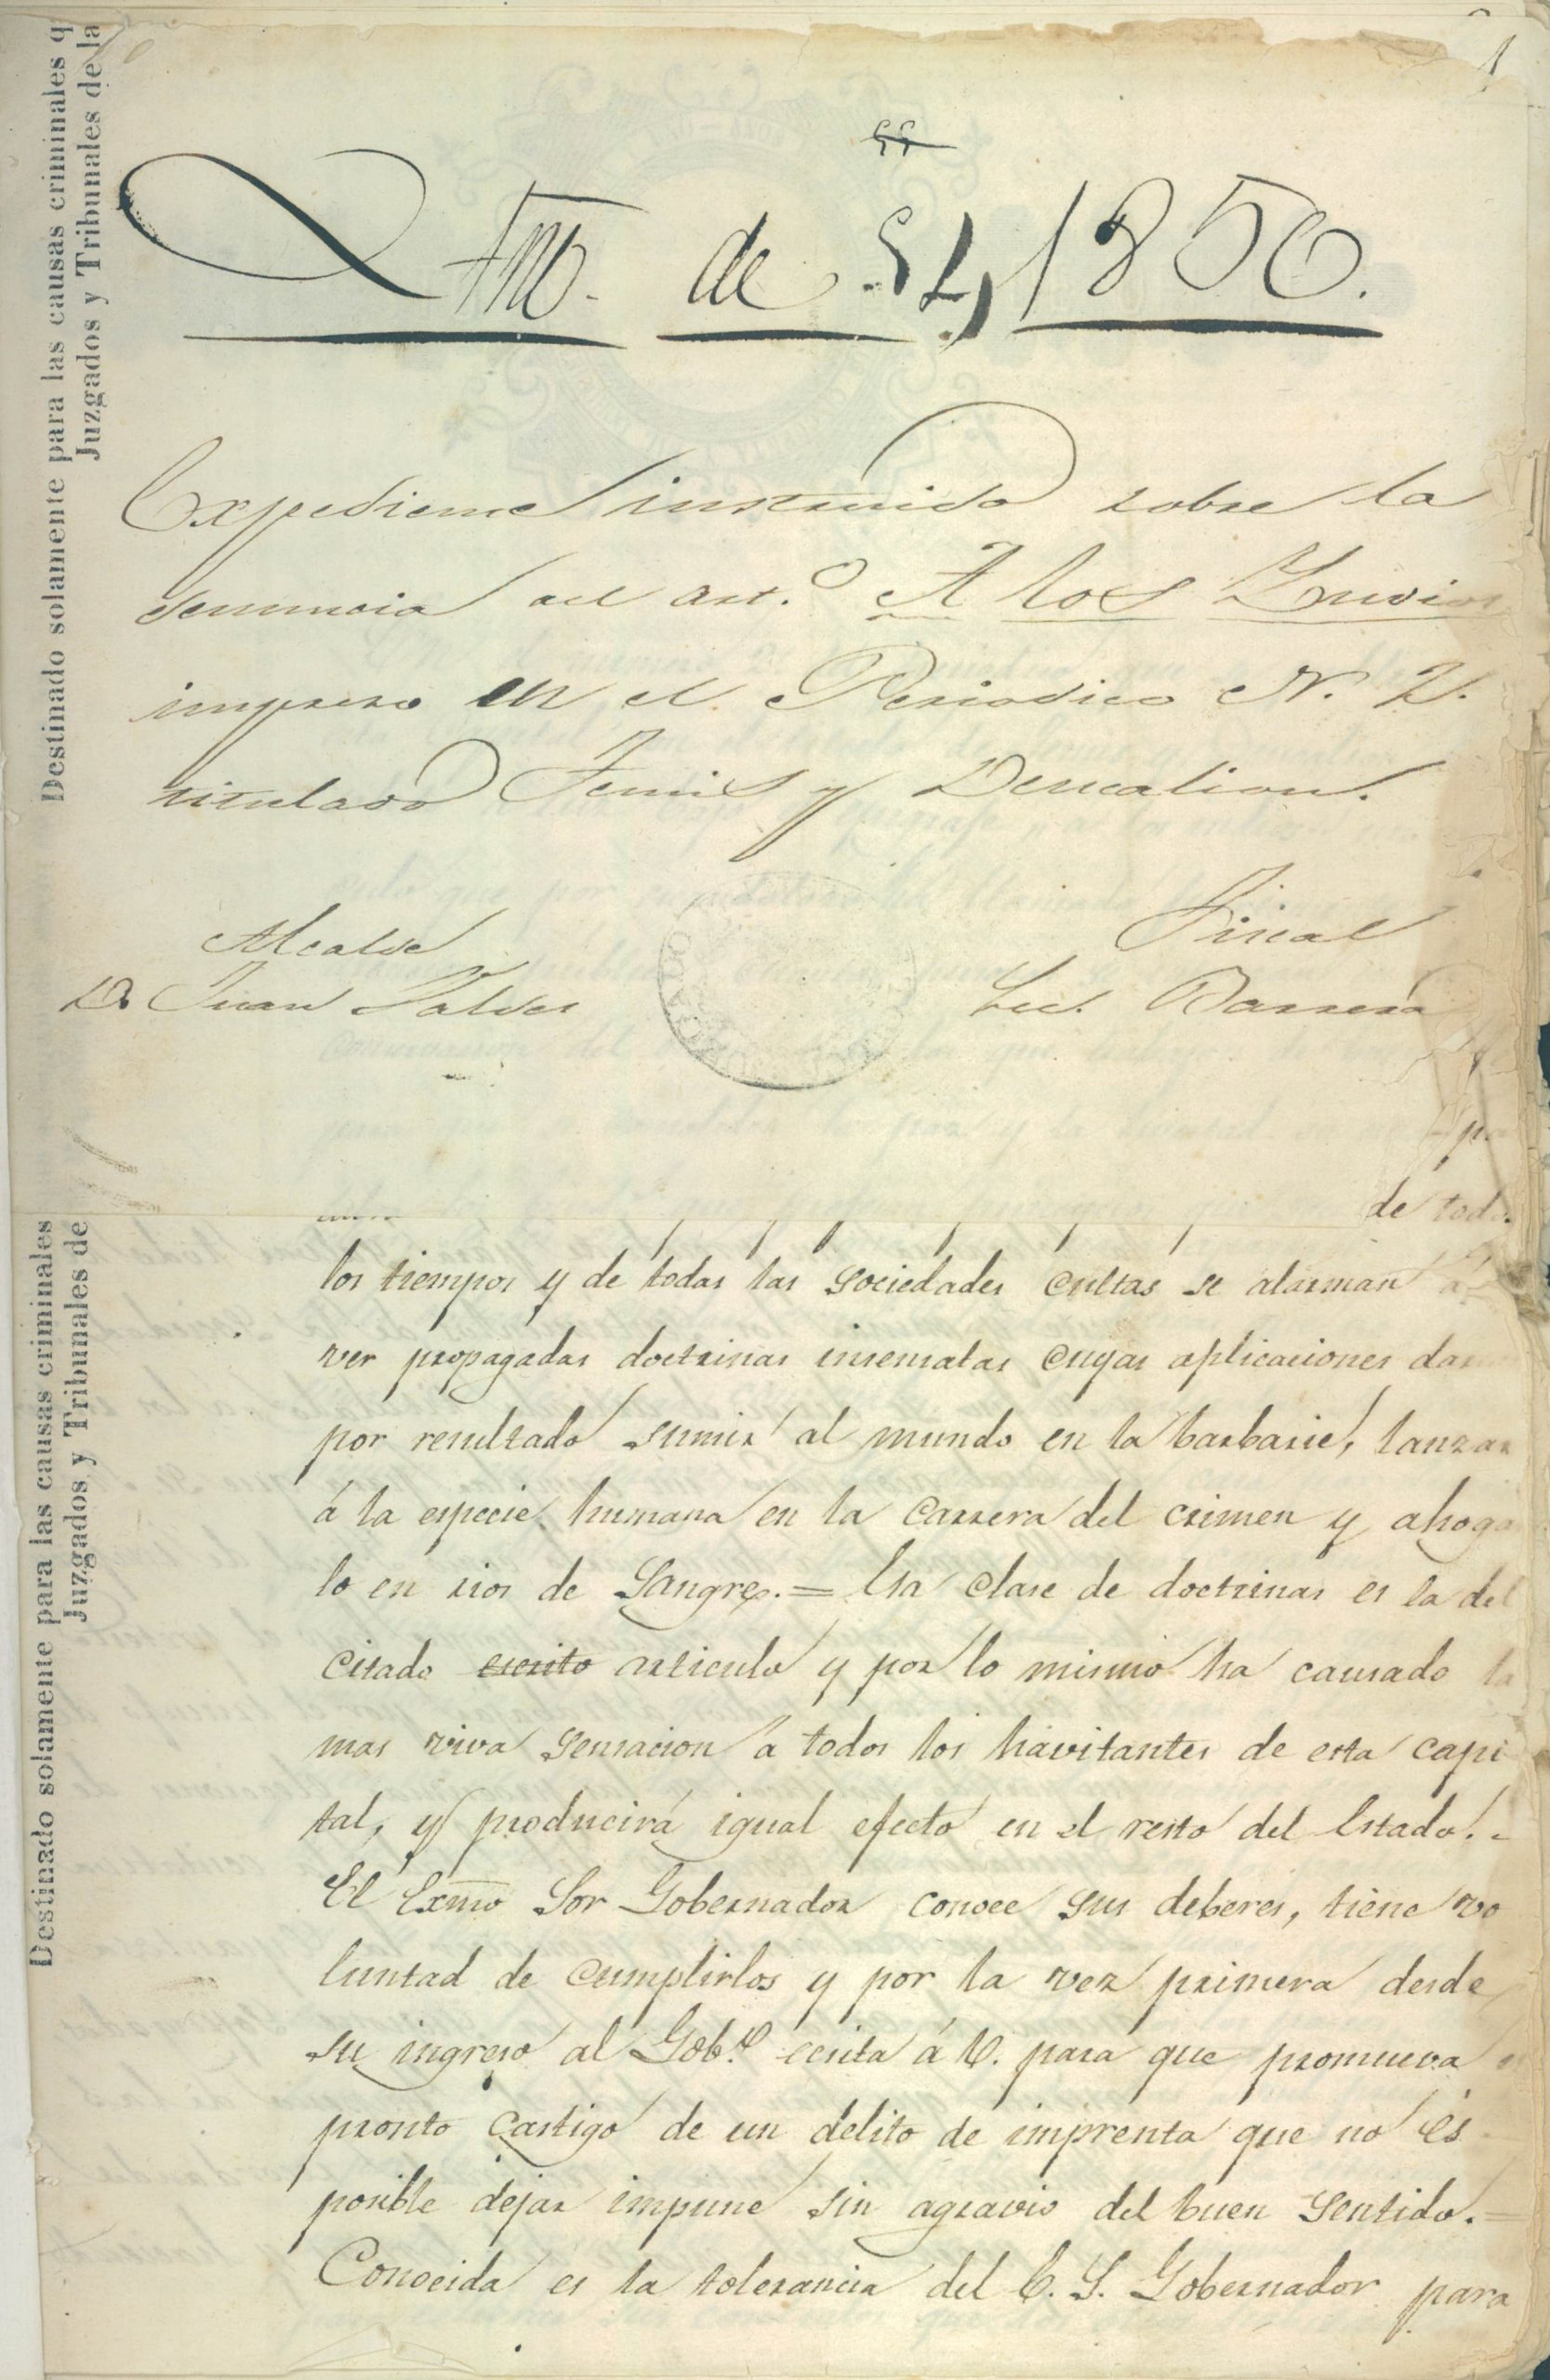 Destinado solamente para las causas criminales q
Juzgados y Tribunales de la
1
Año. de 1850.
Expediente instruido sobre la
denuncia del art.º A los Indios
impreso en el Periodico N. 2.
titulado Temis y Deucalion.
Alcalde
D. Juan Valdes
Fiscal
Lic. Barrera
de todos
los tiempos y de todas las sociedades cultas se alarman á
ver propagadas doctrinas insensatas cuyas aplicaciones
por resultado sumir al mundo en la barbarie, lanzar
á la especie humana en la carrera del crimen y ahogar
lo en rios de sangre.= Esa clase de doctrinas es la del
citado escrito articulo y por lo mismo ha causado la
mas viva sensacion á todos los havitantes de esta capi
tal, y producirá igual efecto en el resto del Estado.=
El Exmo Sor Gobernador conoce sus deberes, tiene vo
luntad de cumplirlos y por la vez primera desde
su ingreso al Gob.º ecsita á V. para que promueva el
pronto castigo de un delito de imprenta que no es
posible dejar impune sin agravio del buen sentido.=
Conocida es la tolerancia del E. S. Gobernador para
Destinado solamente para las causas criminales
Juzgados y Tribunales de